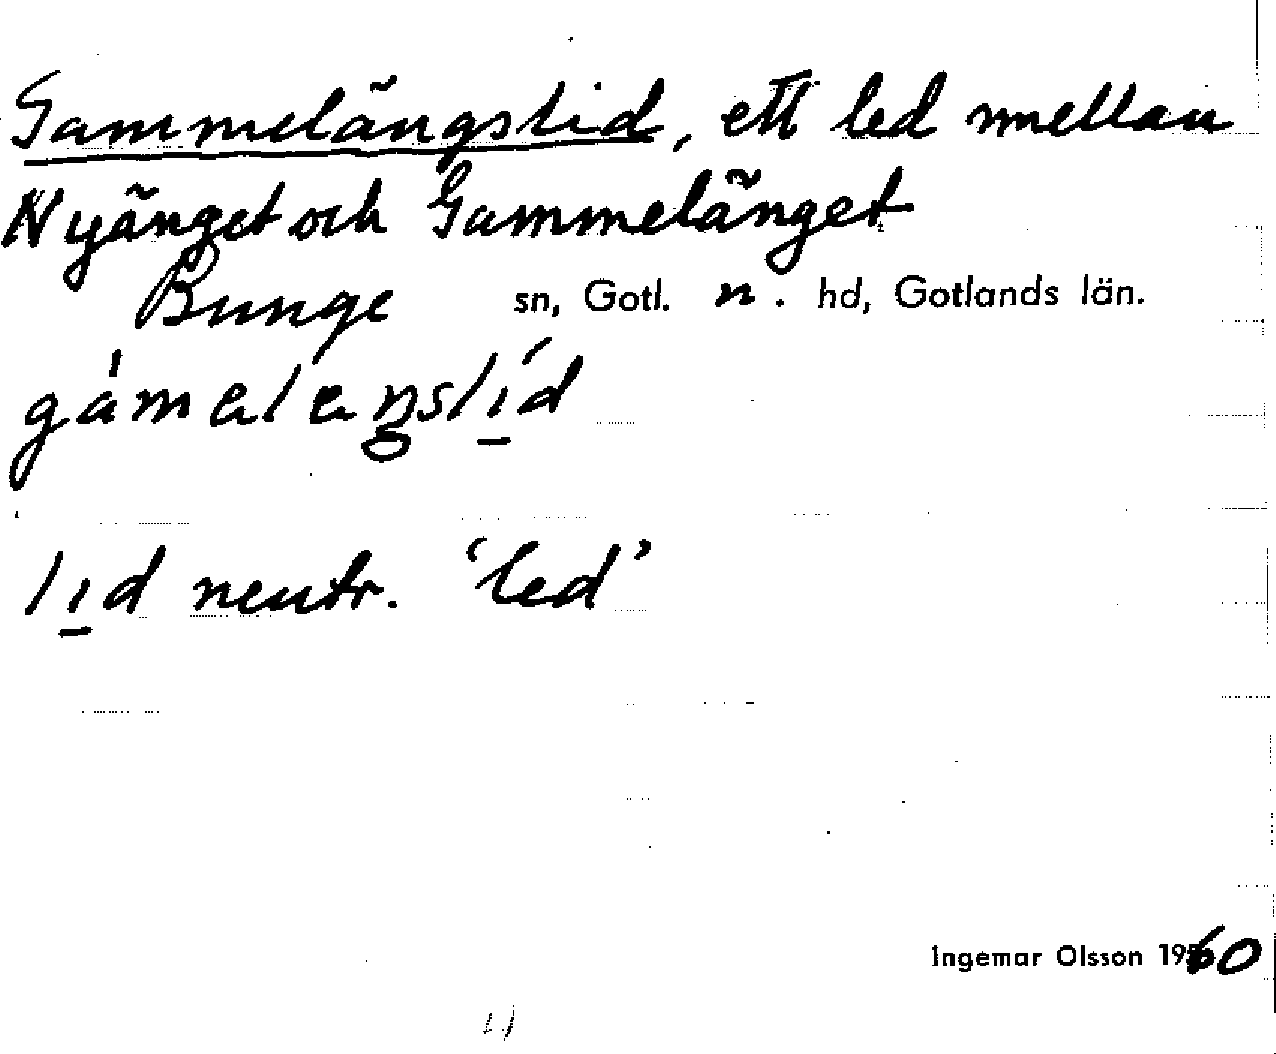 Gammelängslid, ett led mellan
Nyänget och Gammelänget
Bunge sn, Gotl. n. hd, Gotlands län.
lid neutr. 'led'
Ingemar Olsson 1960